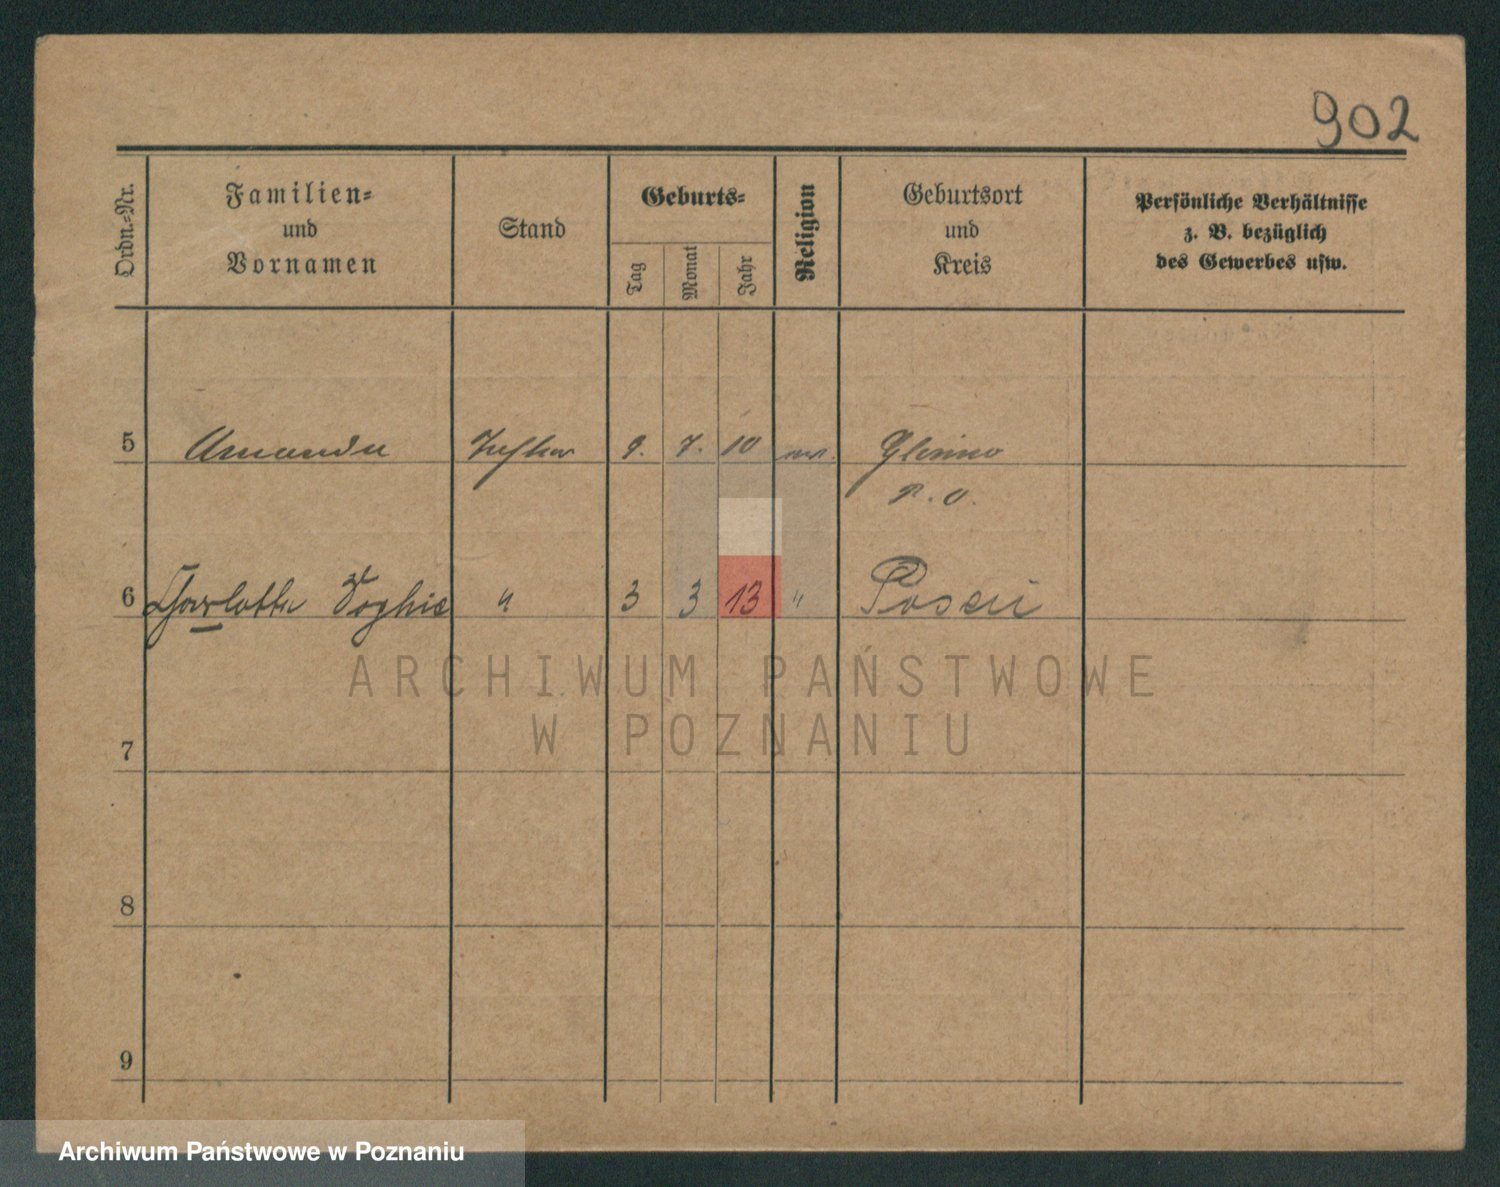 902
Ordn.-Nr.
Familien-
und
Vornamen
Stand
Geburts-
Tag
Monat
Jahr
Religion
Geburtsort
und
Kreis
Persönliche Verhältnisse
z. B. bezüglich
des Gewerbes usw.
5 Amanda Tochter 9. 7. 10 ev. Glinno
P. O.
6 Charlotte Sophie " 3 3 13 " Posen
ARCHIWUM PAŃSTWOWE
W POZNANIU
7
8
9
Archiwum Państwowe w Poznaniu